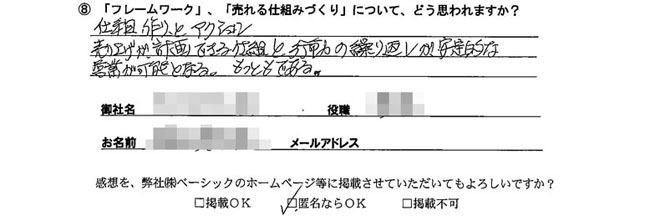 ⑧ 「フレームワーク」、「売れる仕組みづくり」について、どう思われますか？
仕組作りとアクション
売り上げが計画できる仕組と行動の繰り返しが安定的な
営業が可能となる。もっともである。
御社名 役職
お名前 メールアドレス
感想を、弊社㈱ベーシックのホームページ等に掲載させていただいてもよろしいですか？
□掲載ＯＫ ☑匿名ならＯＫ □掲載不可